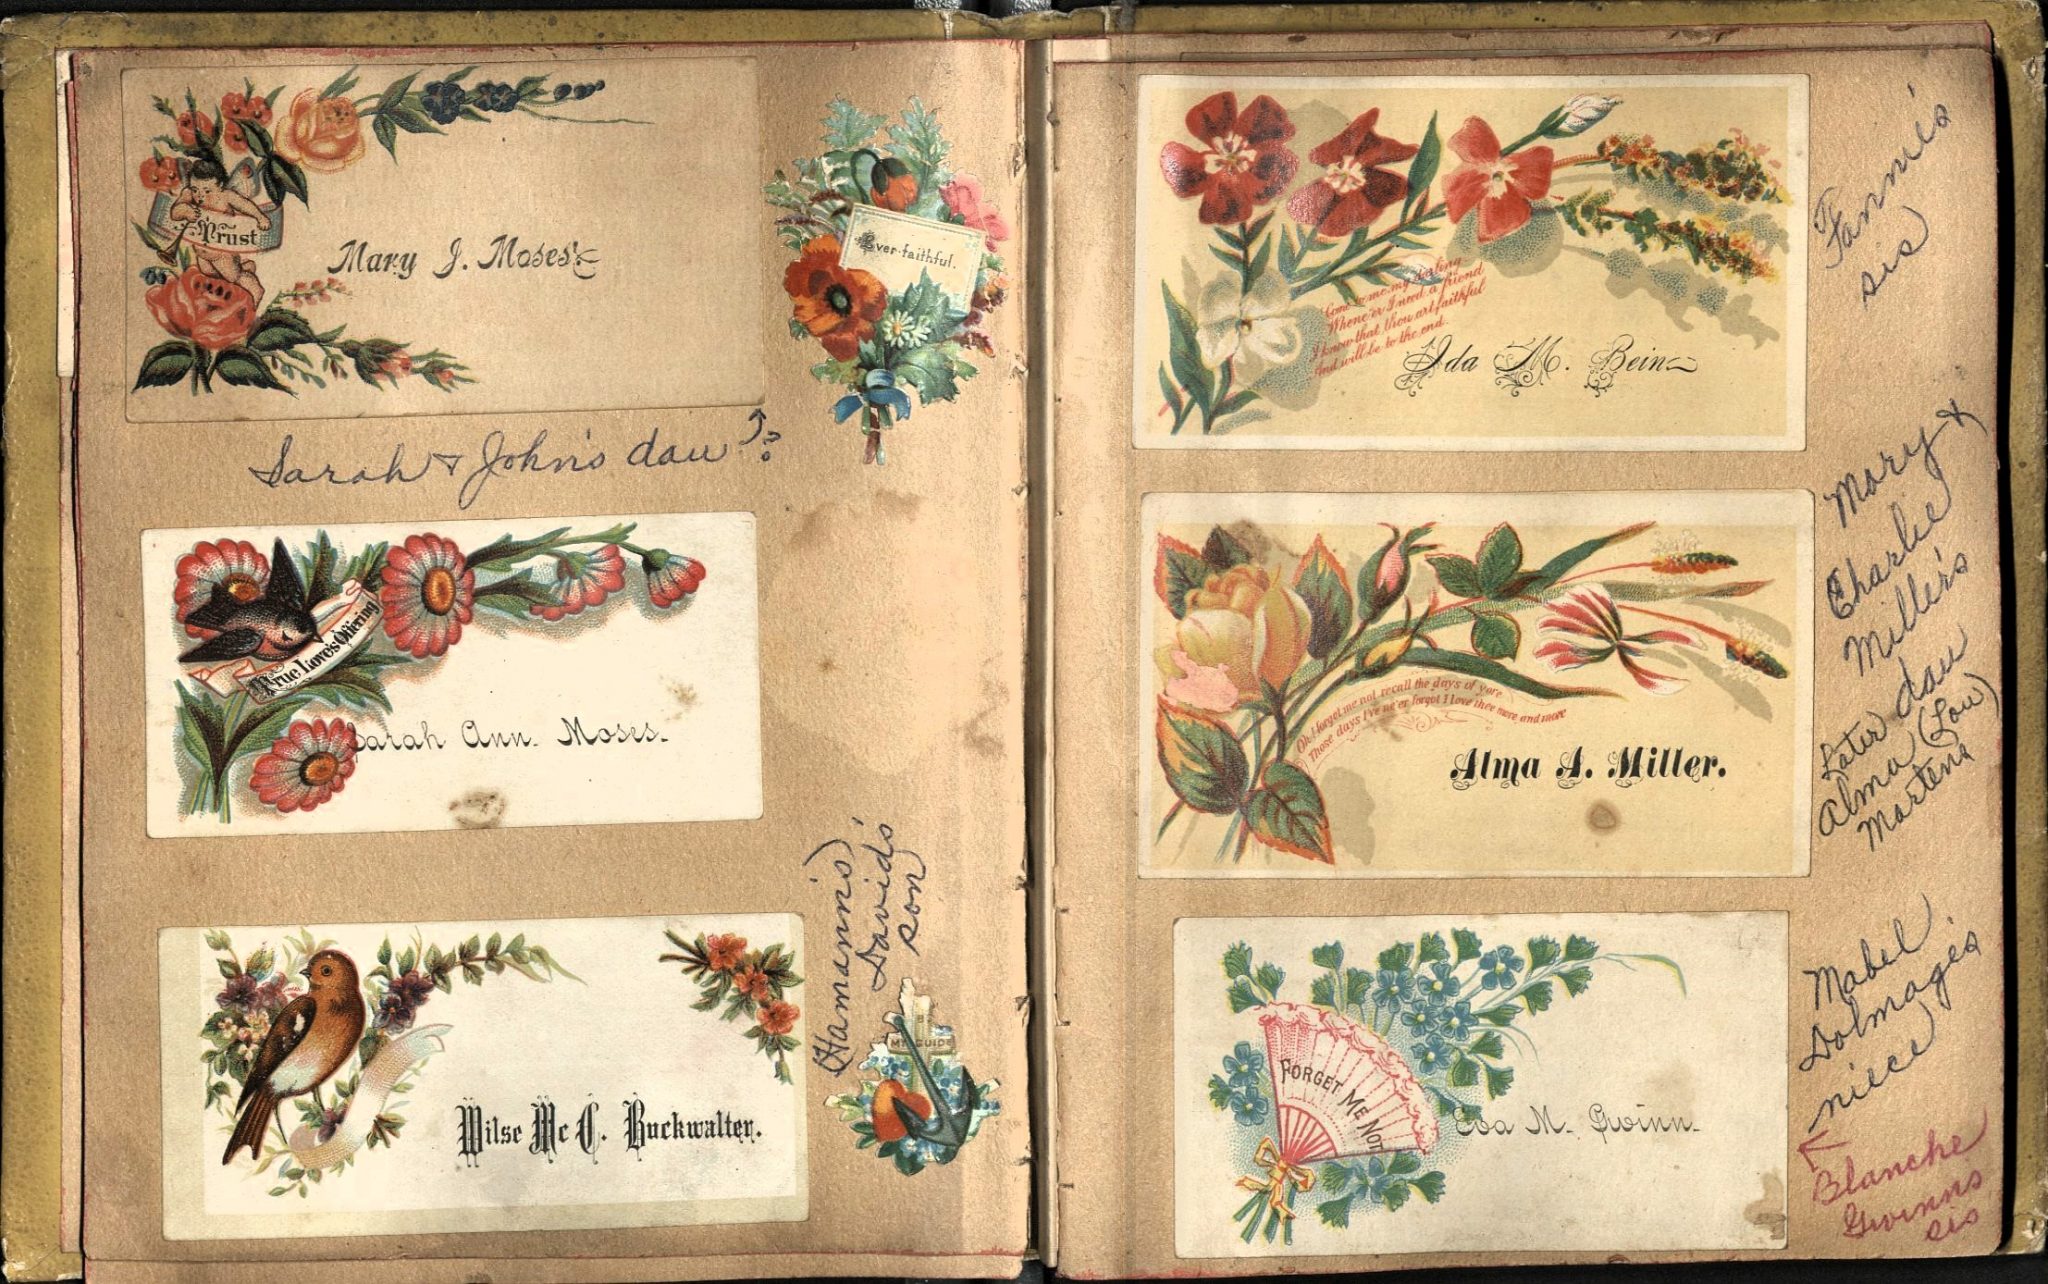 Trust
Mary J. Moses.
Ever faithful.
Sarah & John's dau ?
True Love's Offering
Sarah Ann. Moses.
(Hamann's)
David's
son
Wilse Mc C. Buckwalter.
MY GUIDE
Come to me my darling
Whene'er I need a friend
I know that thou art faithful
And will be to the end.
Ida M. Bein
Fannie's
sis
Oh! forget me not recall the days of yore
Those days I've ne'er forgot I love thee more and more
Alma A. Miller.
Mary &
Charlie
Miller's
dau
Later
Alma (Lou)
Martena
FORGET ME NOT
Eva M. Gwinn.
Mabel
Dolmage's
niece
Blanche
Gwinns
sis